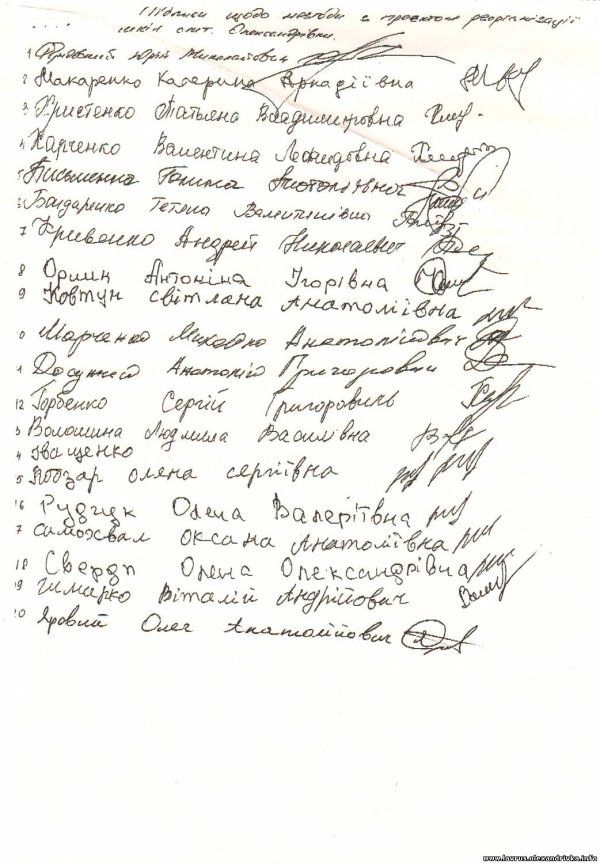 Підписи щодо незгоди з проектом реорганізації
шкіл смт. Олександрівки.
1 Юрій Миколайович
2 Макаренко Катерина Аркадіївна
3 Христенко Татьяна Владимировна
4 Харченко Валентина Леонидовна
5 Письменна Галина Анатоліївна
6 Бондаренко Тетяна Валентинівна
7 Кривенко Андрей Николаевич
8 Орлик Антоніна Ігорівна
9 Ковтун Світлана Анатоліївна
0 Марченко Михайло Анатолійович
1 Анатолій Григорович
12 Горбенко Сергій Григоровичь
3 Волошина Людмила Василівна
4 Іващенко
5 Кобзар Олена Сергіївна
16 Олена Валеріївна
7 Самохвал Оксана Анатоліївна
18 Свердл Олена Олександрівна
19 Віталій Андрійович
20 Яровий Олег Анатолійович
www.lavrus.olexandrivka.info